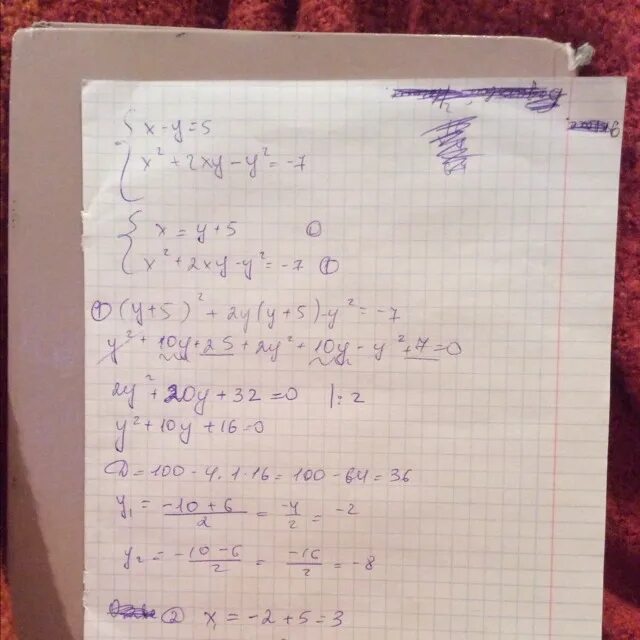 x-y=5
x²+2xy-y²=-7
x=y+5 ①
x²+2xy-y²=-7 ①
① (y+5)²+2y(y+5)-y²=-7
y²+10y+25+2y²+10y-y²+7=0
2y²+20y+32=0 |:2
y²+10y+16=0
D=100-4·1·16=100-64=36
y₁=\frac{-10+6}{2}=\frac{-4}{2}=-2
y₂=\frac{-10-6}{2}=\frac{-16}{2}=-8
② x=-2+5=3